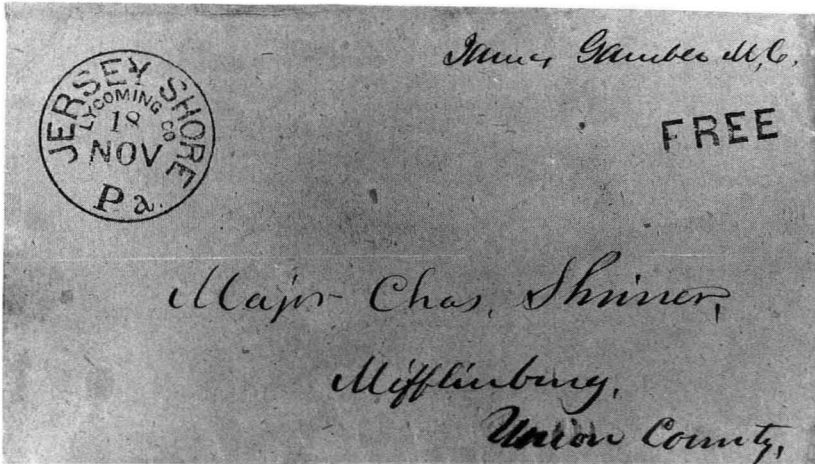 James Gamble M,C.
JERSEY SHORE
LYCOMING CO
18
NOV
Pa.
FREE
Major Chas, Shriner,
Mifflinburg,
Union County,